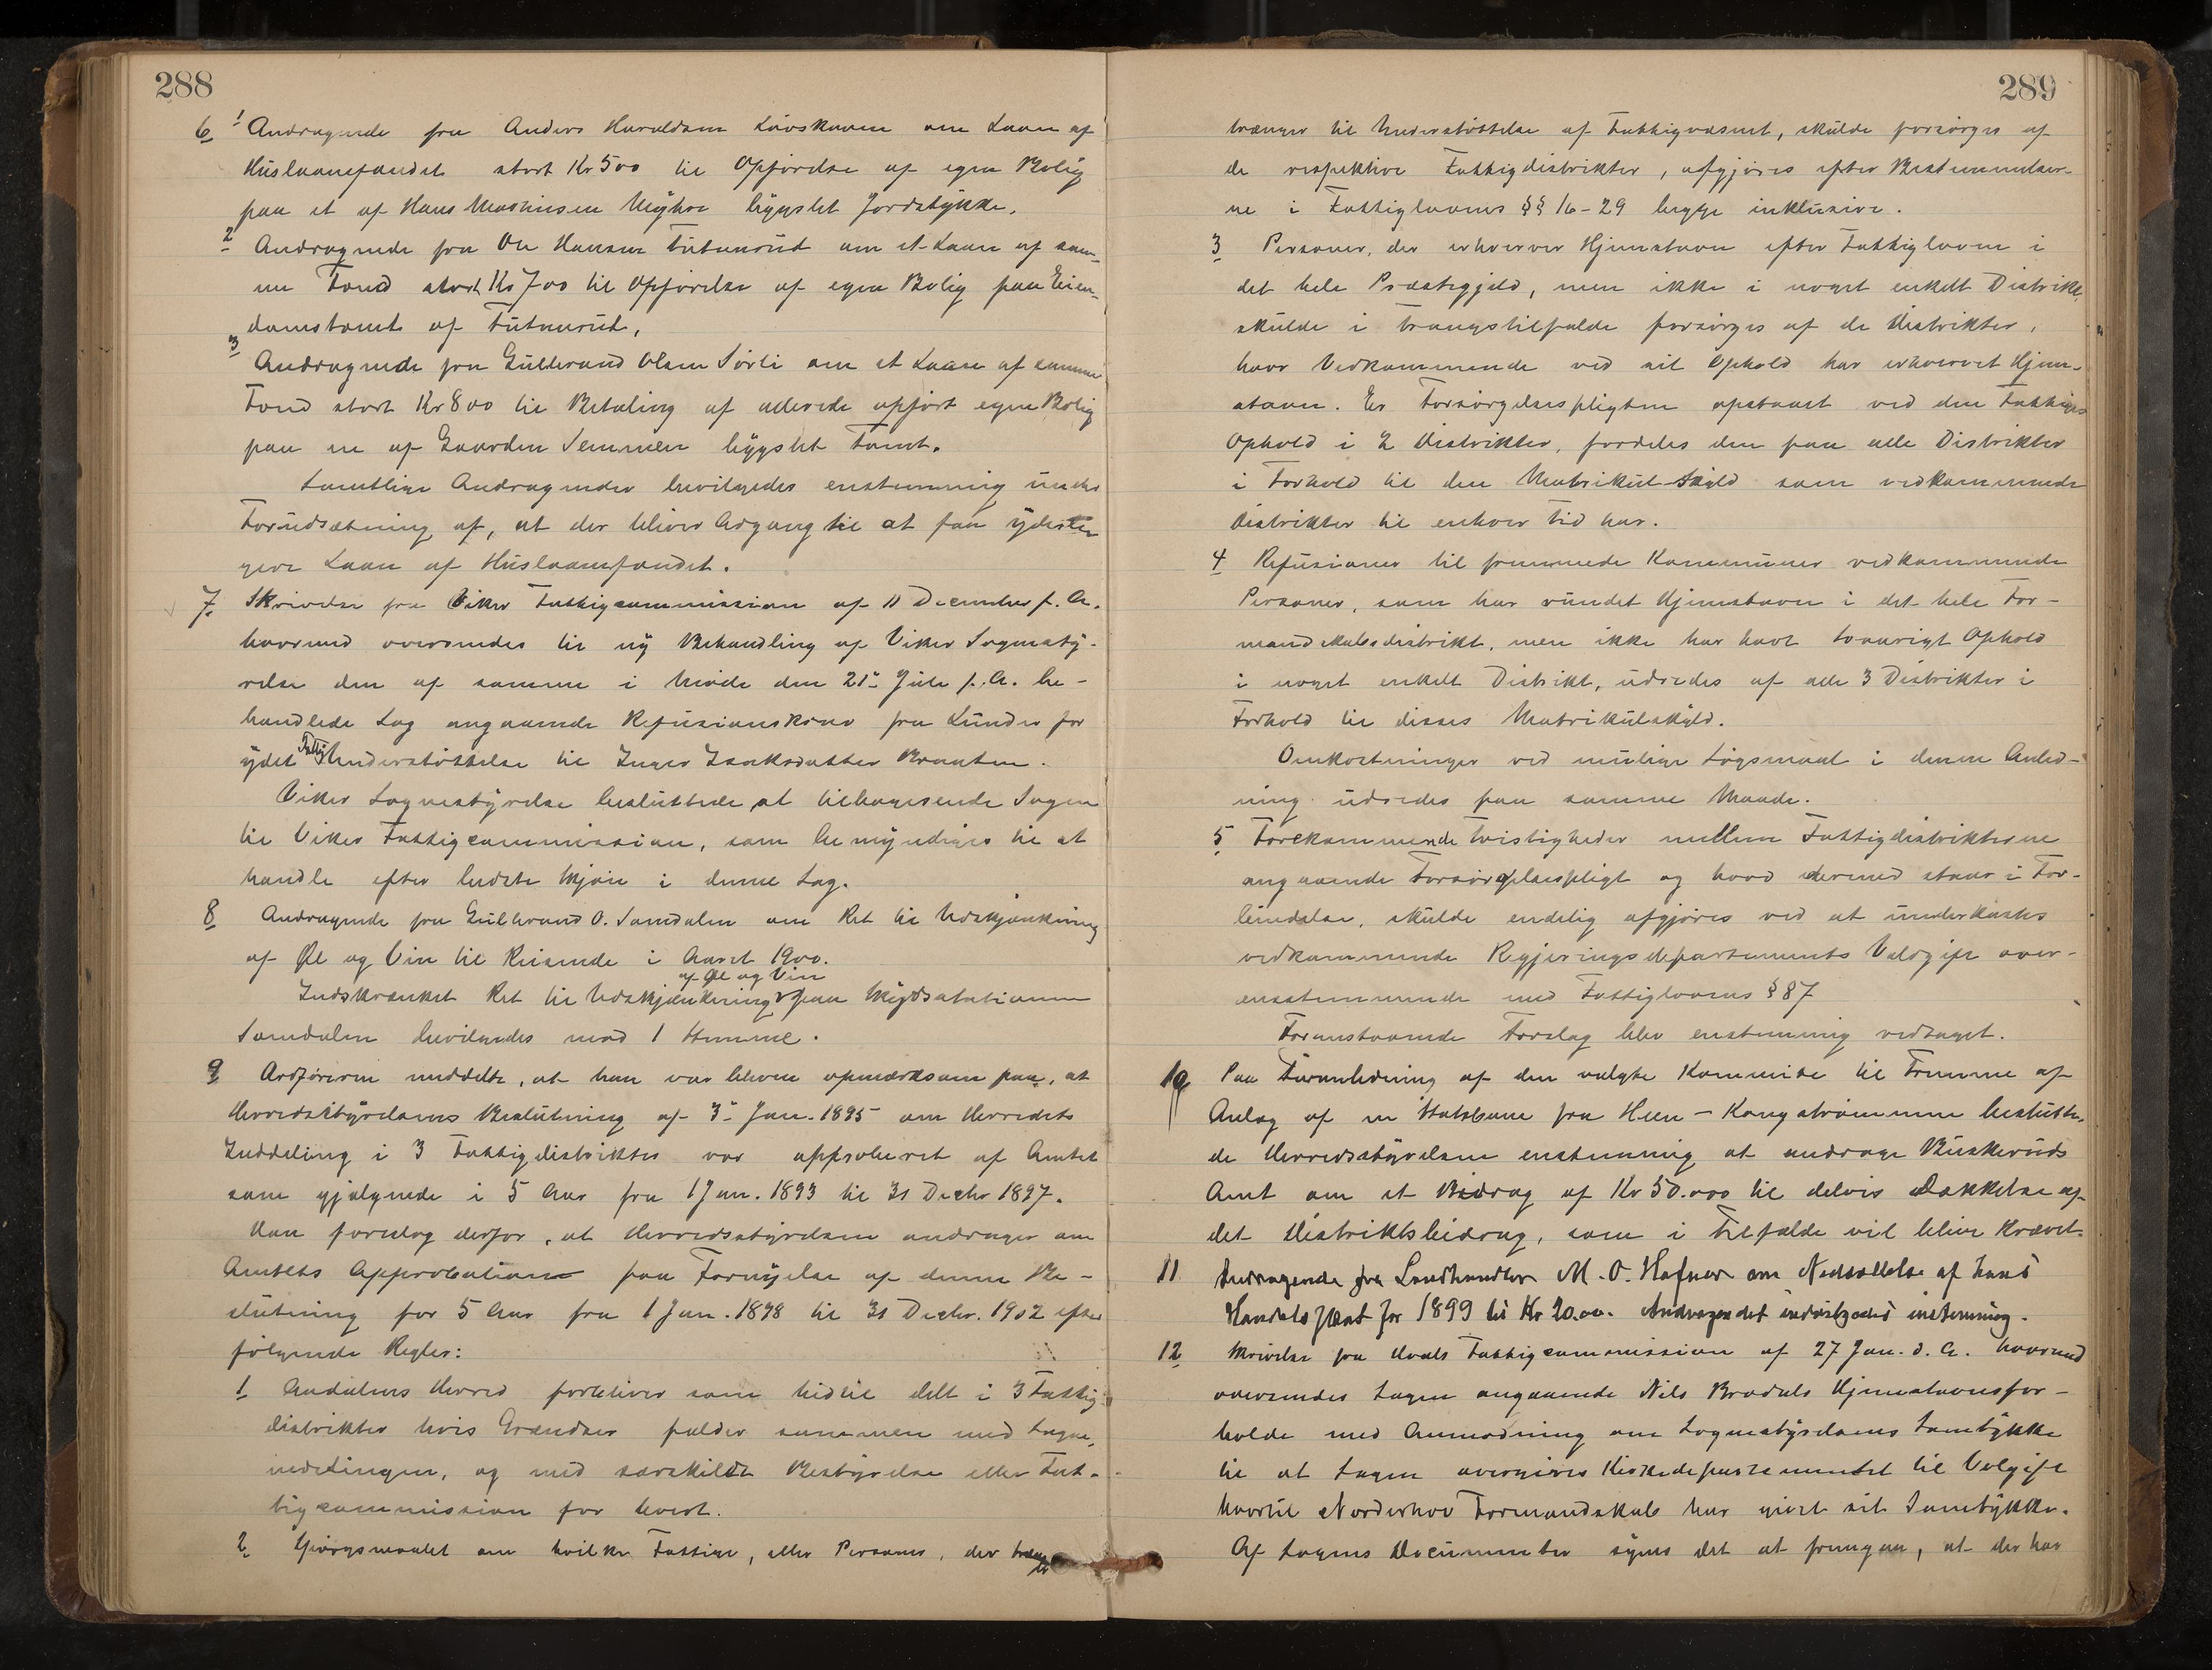 288
6 1 Andragende fra Anders Haraldsen Løvskaven om Laan af
Huslaanefondet stort Kr 500 til Opførelse af egen Bolig
paa et af Hans Mathiesen bygslet Jordstykke.
2 Andragende fra Ole Hansen Tutanrud om et Laan af sam-
me Fond stort Kr 700 til Opførelse af egen Bolig paa Eien-
domstomt af Tutanrud.
3 Andragende fra Gulbrand Olsen Sørli om et Laan af samme
Fond stort Kr 800 til Betaling af allerede opført egen Bolig
paa en af Gaarden Semmen bygslet Tomt.
Samtlige Andragender bevilgedes enstemmig under
Forudsætning af, at der bliver Adgang til at faa yderli
gere Laan af Huslaanfondet.
7. Skrivelse fra Viker Fattigcommission af 11 December f. A.
hvormed oversendes til ny Behandling af Viker Sognesty-
relse den af samme i Møde den 21de Juli f. A. be-
handlede Sag angaaende Refusionskrav fra Lunder for
ydet Fattig Understøttelse til Inger Isaksdatter Braaten.
Viker Sognestyrelse besluttede at tilbagesende Sagen
til Viker Fattigcommission, som bemyndiges til at
handle efter bedste Skjøn i denne Sag.
8 Andragende fra Gulbrand O. Somdalen om Ret til Udskjænkning
af Øl og Vin til Reisende i Aaret 1900.
af Øl og Vin
Indskrænket Ret til Udskjænkning paa Skydsstationen
Somdalen bevilgedes mod 1 Stemme.
9 Ordføreren meddelte, at han var bleven opmærksom paa, at
Herredsstyrelsens Beslutning af 3de Jan. 1895 om Herredets
Inddeling i 3 Fattigdistrikter var approberet af Amtet
som gjældende i 5 Aar fra 1 Jan. 1893 til 31 Decbr 1897.
Han foreslog derfor, at Herredsstyrelsen andrager om
Amtets Approbation paa Fornyelse af denne Be-
slutning for 5 Aar fra 1 Jan. 1898 til 31 Decbr. 1902 efter
følgende Regler:
1 Aadalens Herred forbliver som hidtil delt i 3 Fattig-
distrikter hvis Grændser falder sammen med Sogne-
inddelingen, og med særskildt Bestyrelse eller Fat-
tigcommission for hvert.
2 Spørgsmaalet om hvilke Fattige, eller Personer, der
289
trænger til Understøttelse af Fattigvæsenet, skulde forsørges af
de respektive Fattigdistrikter, afgjøres efter Bestemmelser-
ne i Fattiglovens §§ 16-29 begge inklusive.
3 Personer, der erhverver Hjemstavn efter Fattigloven i
det hele Præstegjeld, men ikke i noget enkelt Distrikt,
skulde i Trangstilfælde forsørges af de Distrikter,
hvor Vedkommende ved sit Ophold har erhvervet Hjem-
stavn. Er Forsørgelsespligten opstaaet ved den Fattiges
Ophold i 2 Distrikter, fordeles den paa alle Distrikter
i Forhold til den Matrikul-Skyld som vedkommende
Distrikter til enhver Tid har.
4 Refusioner til fremmede Kommuner vedkommende
Personer, som har vundet Hjemstavn i det hele For-
mandskabsdistrikt, men ikke har havt toaarigt Ophold
i noget enkelt Distrikt, udredes af alle 3 Distrikter i
Forhold til disses Matrikulskyld.
Omkostninger ved mulige Søgsmaal i denne Anled-
ning udredes paa samme Maade.
5 Forekommende Tvistigheder mellem Fattigdistrikterne
angaaende Forsørgelsespligt og hvad dermed staar i For-
bindelse, skulde endelig afgjøres ved at underkastes
vedkommende Regjeringsdepartements Voldgift over-
ensstemmende med Fattiglovens § 87
Foranstaaende Forslag blev enstemmig vedtaget.
10 Paa Foranledning af den valgte Kommite til Fremme af
Anlæg af en Statsbane fra Heen - Kongsstrømmen beslutte-
de Herredsstyrelsen enstemmig at andrage Buskeruds
Amt om et Bidrag af Kr 50.000 til delvis Dækkelse af
det Distriktsbidrag, som i Tilfælde vil blive Krævet.
11 Andragende fra Landhandler M. O. Hafnor om Nedsættelse af hans
Handelsskat for 1899 til Kr 20.00. Andragendet indvilgedes enstemmig.
12 Skrivelse fra Hvals Fattigcommission af 27 Jan. d. A. hvormed
oversendes Sagen angaaende Nils Bradals Hjemstavnsfor-
holde med Anmodning om Sognestyrelsens Samtykke
til at Sagen overgives Kirkedepartementet til Volgift
hvortil Norderhov Formandskab har givet sit Samtykke.
Af Sagens Documenter synes det at fremgaa, at der har